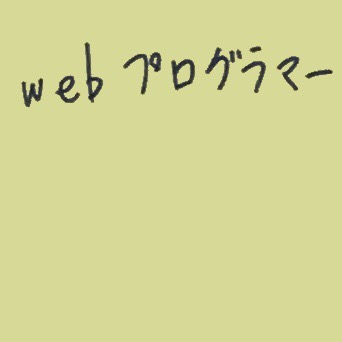 web プログラマー